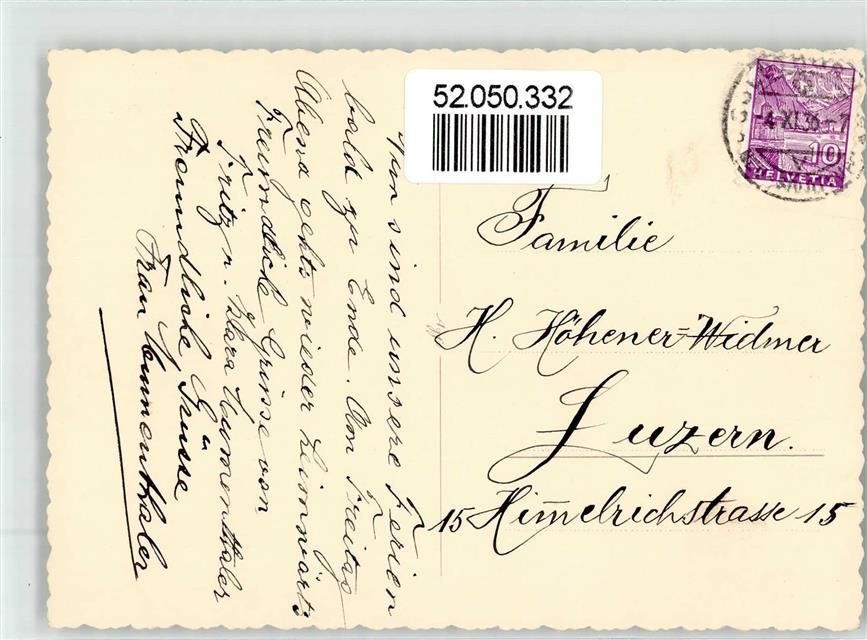 Nun sind unsere Ferien
bald zu Ende. Am Freitag
Abend gehts wieder heimwärts
Freundliche Grüsse von
Fritz u. Klara Lumenthaler
Freundliche Grüsse
Frau Lumenthaler
52.050.332
-4.XI.36-7
10
HELVETIA
Familie
H. Höhener-Widmer
Luzern.
15 Himelrichstrasse 15